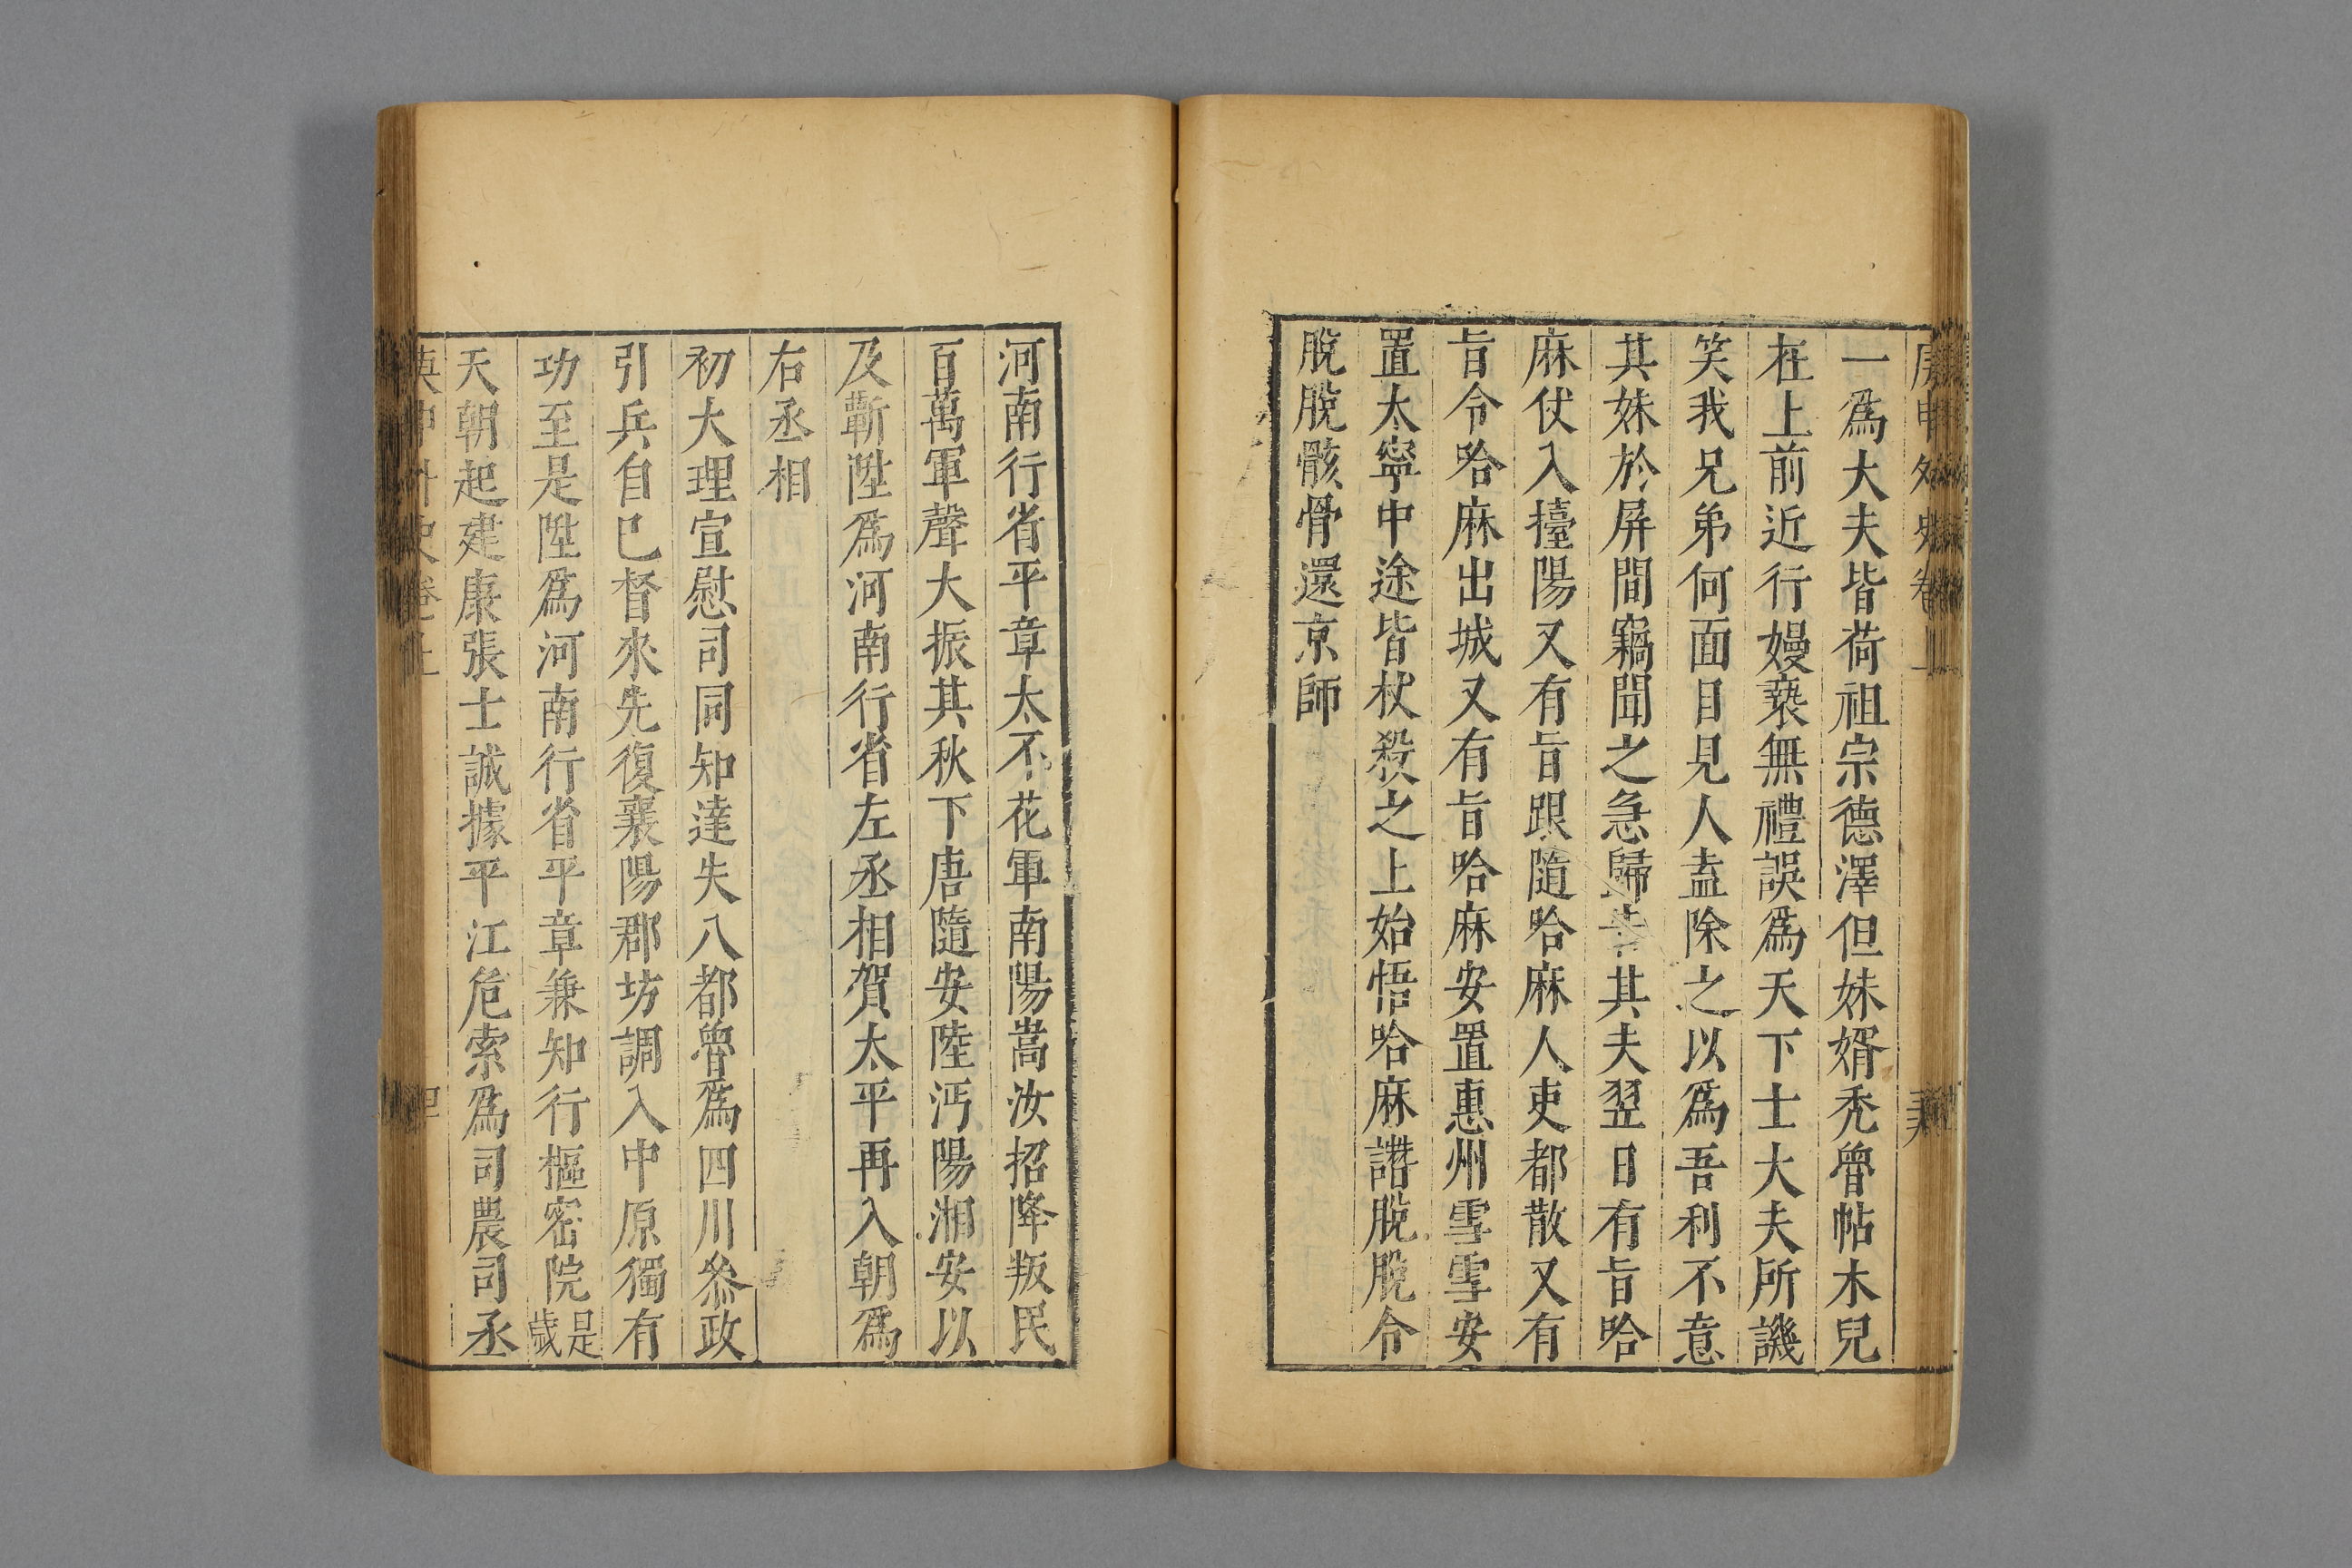 庚申外史卷上
一爲大夫皆荷祖宗德澤但妹婿禿魯帖木兒
在上前近行嫚䙝無禮誤爲天下士大夫所譏
笑我兄弟何面目見人盍除之以爲吾利不意
其妹於屏間竊聞之急歸告其夫翌日有旨哈
麻仗入擡陽又有旨跟隨哈麻人吏都散又有
旨令哈麻出城又有旨哈麻安置惠州雪雪安
置太寧中途皆杖殺之上始悟哈麻譖脫脫令
脫脫骸骨還京師
河南行省平章太不花軍南陽嵩汝招降叛民
百萬軍聲大振其秋下唐隨安陸沔陽湘安以
及蘄陞爲河南行省左丞相賀太平再入朝爲
右丞相
初大理宣慰司同知達失八都魯爲四川參政
引兵自巴督來先復襄陽郡坊調入中原獨有
功至是陞爲河南行省平章兼知行樞密院是歲
天朝起建康張士誠據平江危索爲司農司丞
庚申外史卷上